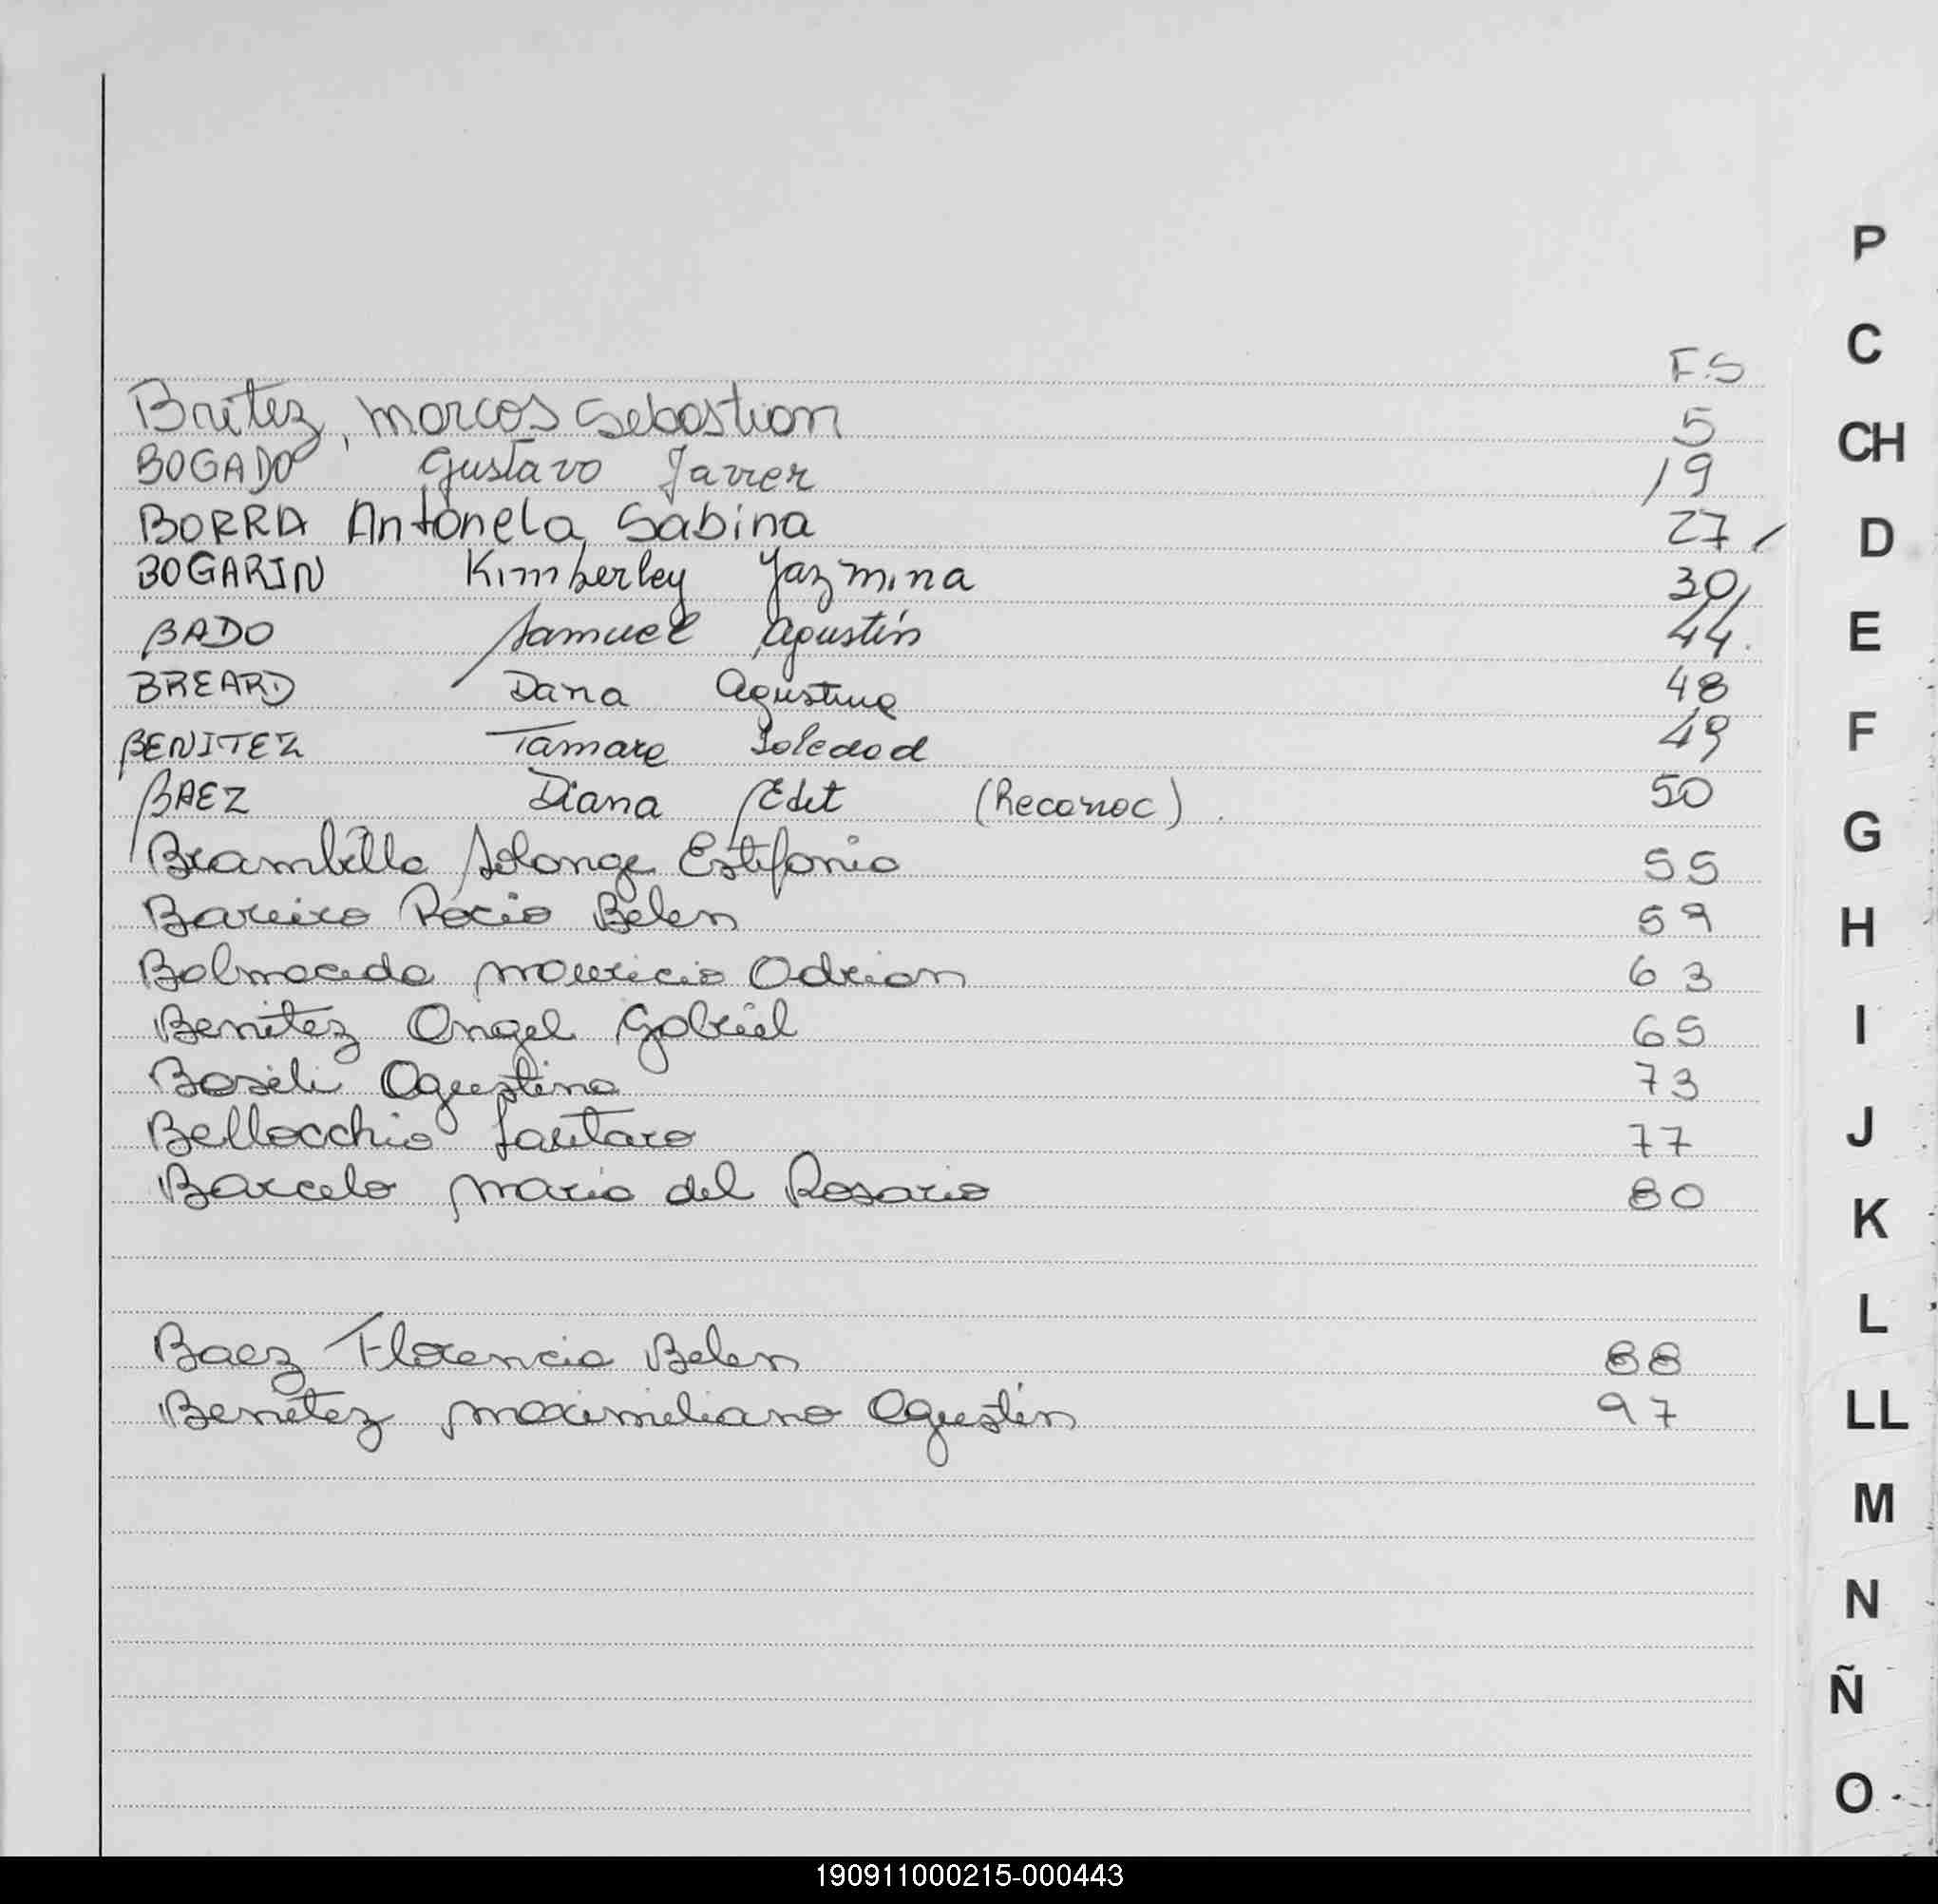 F.S
Britez, Marcos Sebastian 5
BOGADO Gustavo Javier 19
BORRA Antonela Sabina 27
BOGARIN Kimberley Yazmina 30
BADO Samuel Agustín 44
BREARD Dana Agustina 48
BENITEZ Tamara Soledad 49
BAEZ Diana Edit (Reconoc) 50
Brambilla Solange Estifania 55
Bareiro Rocio Belen 59
Balmaceda Mauricio Adrian 63
Benitez Angel Gabriel 65
Agustina 73
Bellocchio Lautaro 77
Barcelo Maria del Rosario 80
Baez Florencia Belen 88
Benitez Maximiliano Agustín 97
P
C
CH
D
E
F
G
H
I
J
K
L
LL
M
N
Ñ
O
190911000215-000443